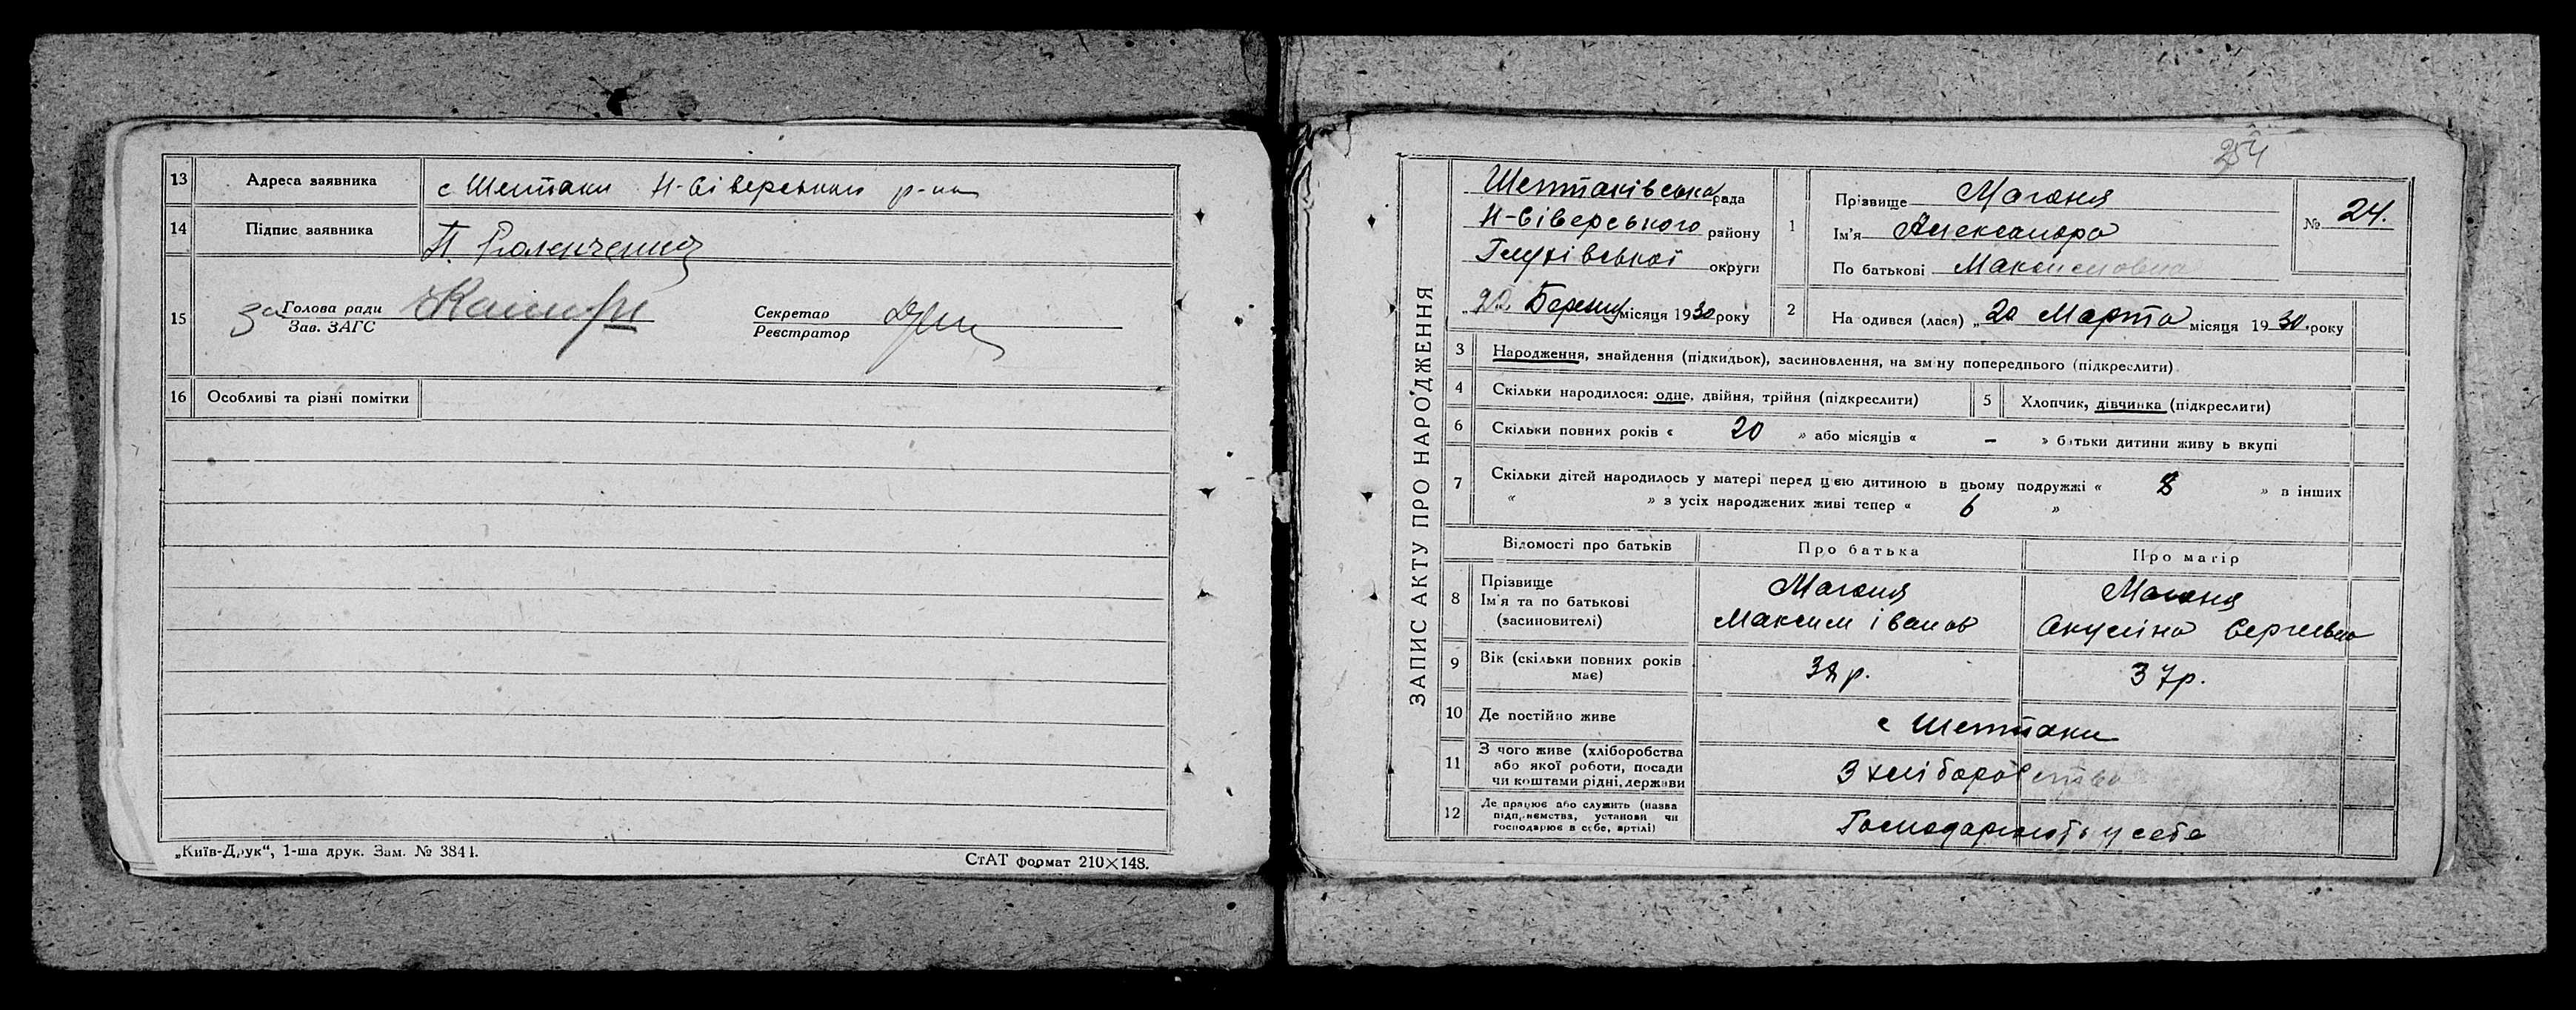 13 Адреса заявника с Шептаки Н-Сіверського р-на
14 Підпис заявника
15 За Голова ради Секретар
Зав. ЗАГС Реєстратор
16 Особливі та різні помітки
„Київ-Друк“, 1-ша друк. Зам. № 3841.
СтАТ формат 210×148.
254
ЗАПИС АКТУ ПРО НАРОДЖЕННЯ
Шептаківська рада
Н-Сіверського району
Глухівської округи
місяця 1930 року
1 Прізвище Магоня
Ім'я Александра
По батькові Максимовна
№ 24.
2 На одився (лася) „20 Марта місяця 1930 року
3 Народження, знайдення (підкидьок), засиновлення, на зміну попереднього (підкреслити)
4 Скільки народилося: одне, двійня, трійня (підкреслити)
5 Хлопчик, дівчинка (підкреслити)
6 Скільки повних років « 20 » або місяців « – » батьки дитини живу ь вкупі
7 Скільки дітей народилось у матері перед цією дитиною в цьому подружжі « 8 » в інших
« » з усіх народжених живі тепер « 6 »
Відомості про батьків Про батька Про матір
8 Прізвище Магоня Магоня
Ім'я та по батькові Максим Іванов Акуліна Сергіевна
(засновителі)
9 Вік (скільки повних років 37р.
має)
10 Де постійно живе с Шептаки
11 З чого живе (хліборобства
або якої роботи, посади З хліборобства
чи коштами рідні, держави
12 Де працює або служить (назва
підприємства, установи чи Господарюють у себе
господарює в себе, артілі)